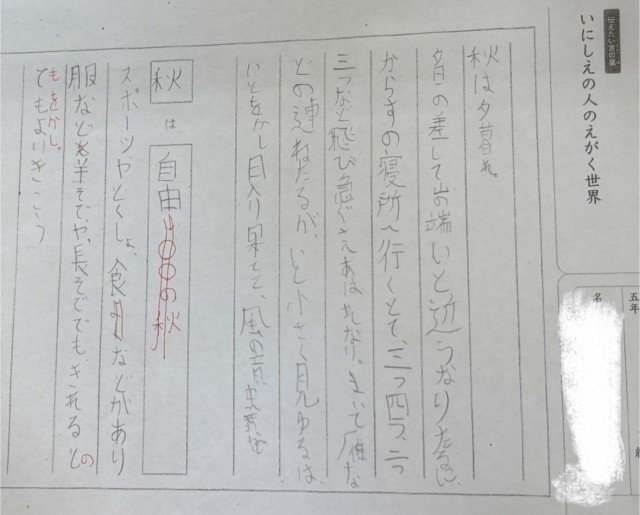 伝えたい言の葉
いにしえの人のえがく世界
五年
名
秋は夕暮れ
夕日の差して山の端いと近うなりたるに、
からすの寝所へ行くとて、三つ四つ、二つ
三つなど飛び急ぐさえあはれなり。まいて雁な
どの連ねたるが、いと小さく見ゆるは、
いとをかし日入り果てて、風の音、虫
秋は自由の秋
スポーツやどくしょ、食 などがあり
服など半そでや、長そででも、きれるとの
もをかし。
でもよりきこう